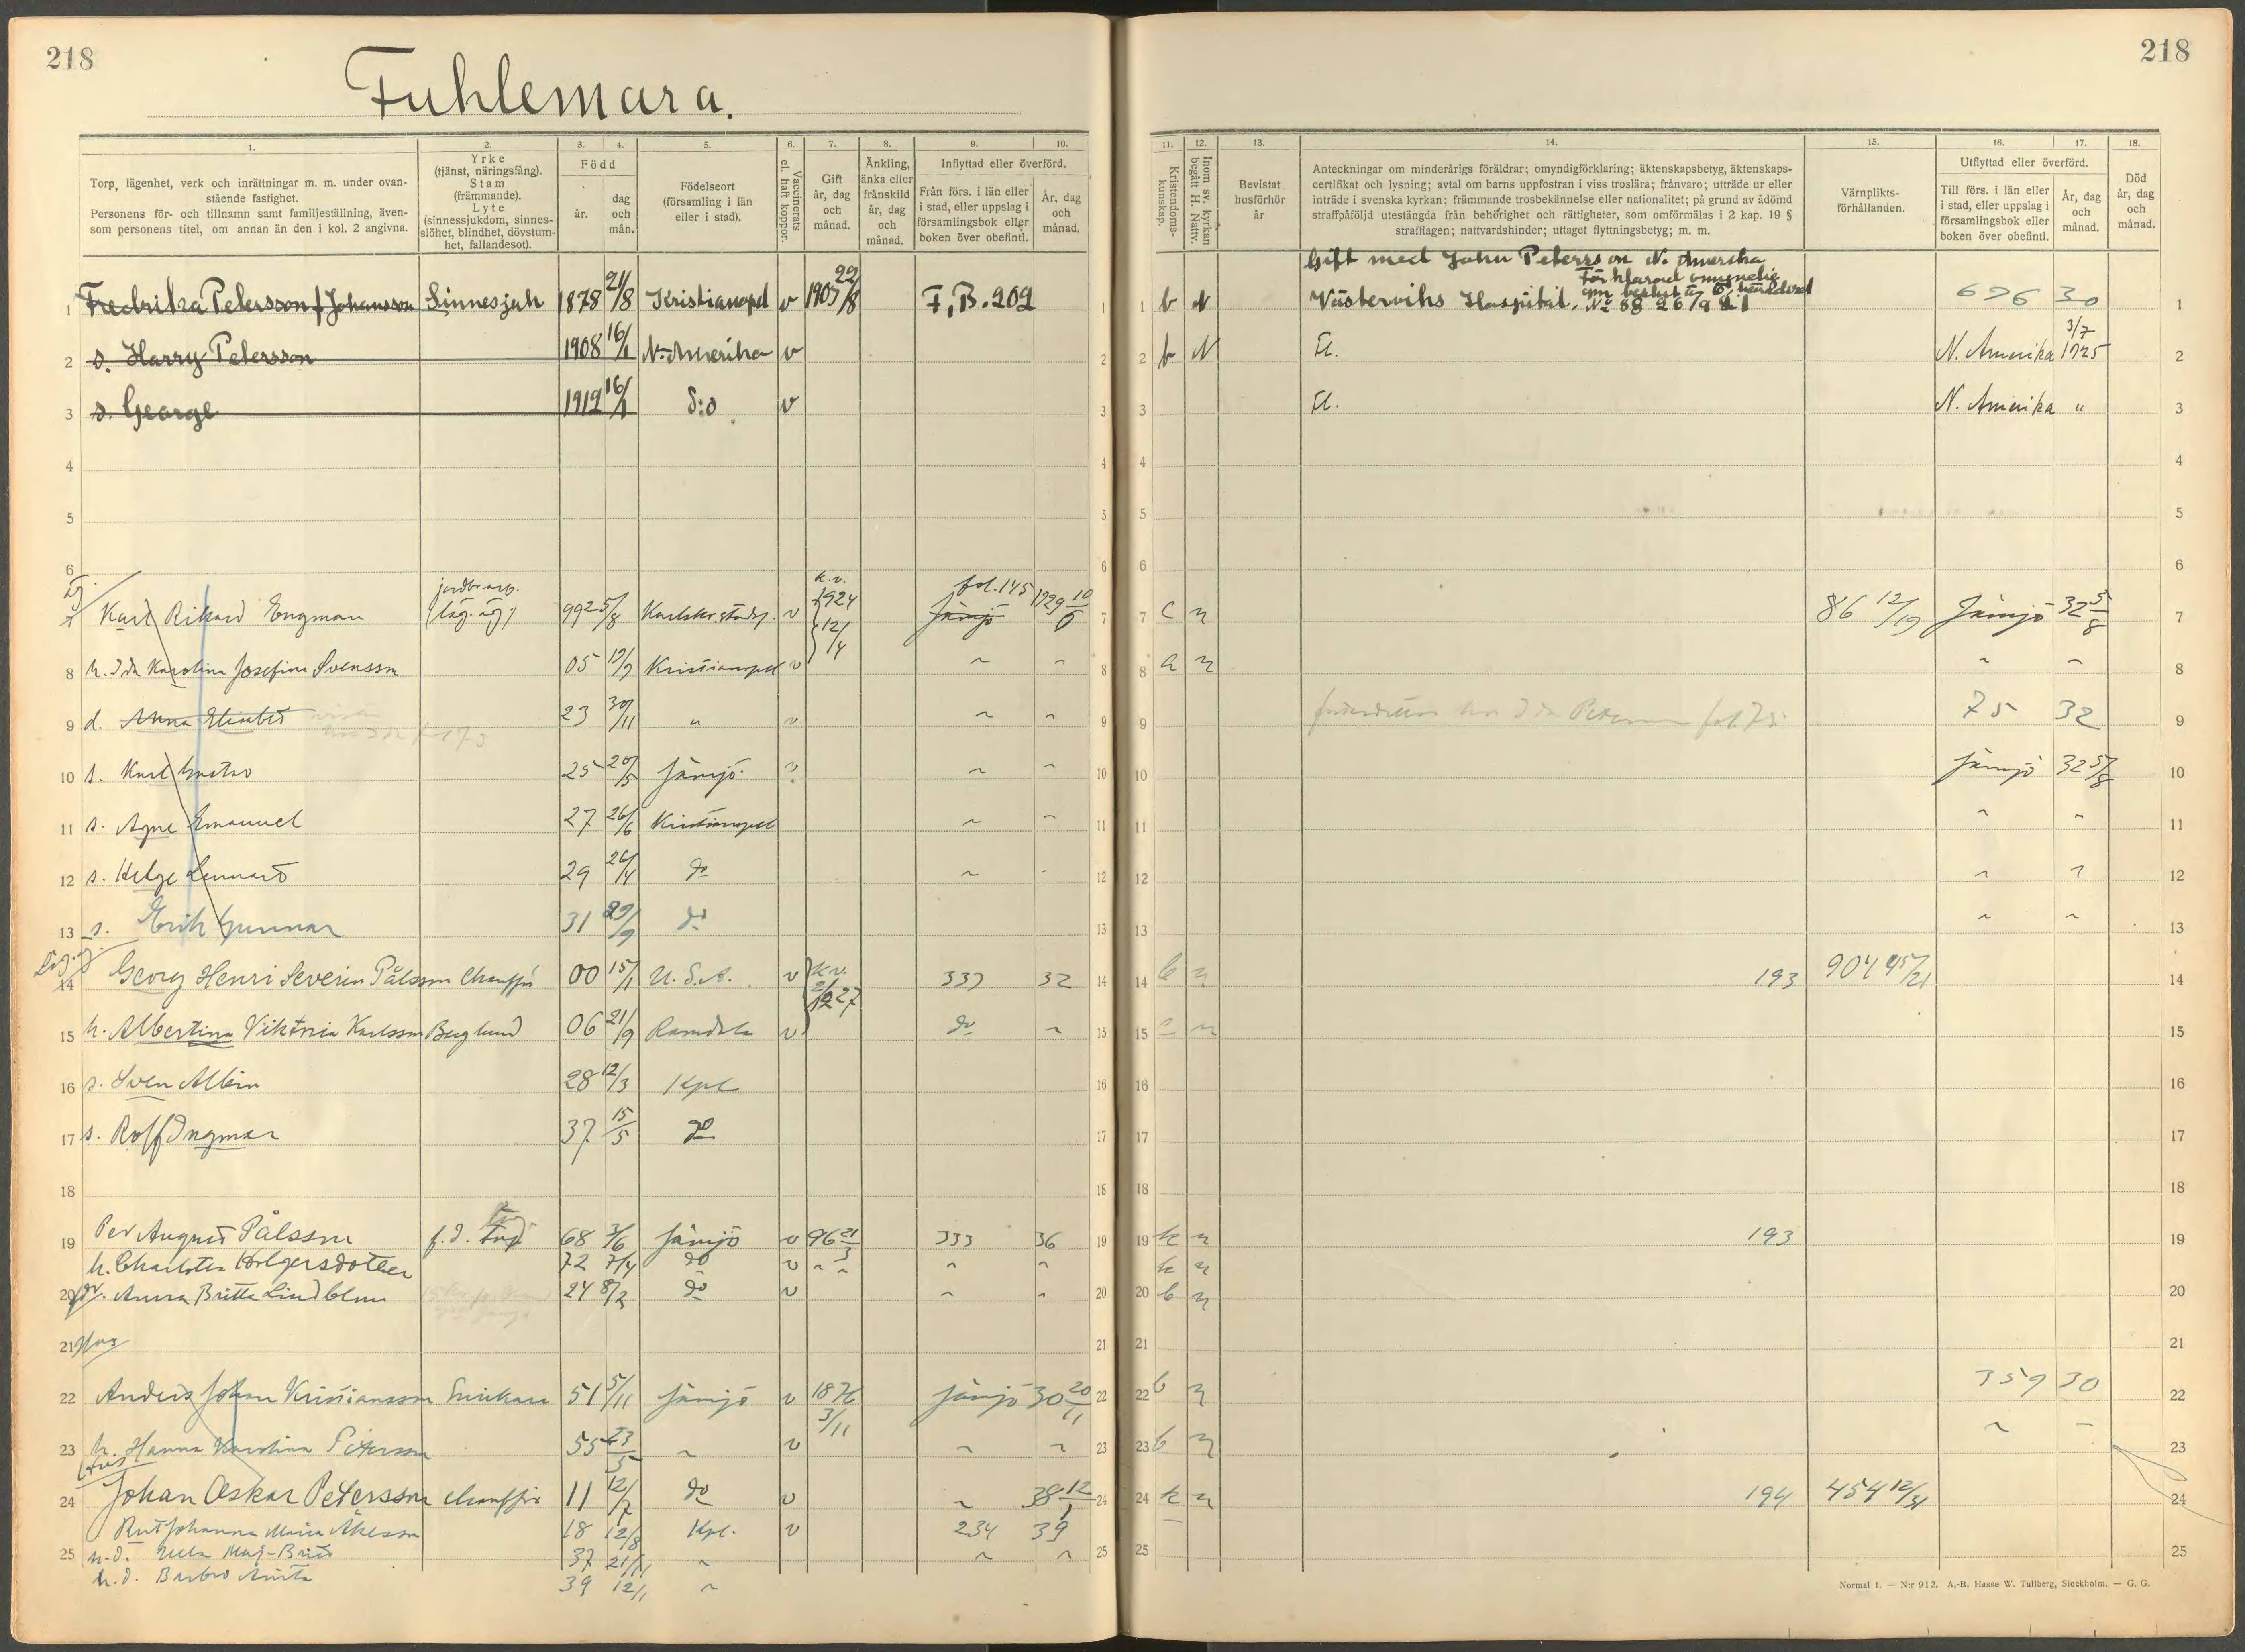 218
218
Fuhlemara.
1.
Torp, lägenhet, verk och inrättningar m. m. under ovan-
stående fastighet.
Personens för- och tillnamn samt familjeställning, även-
som personens titel, om annan än den i kol. 2 angivna.
2.
Yrke
(tjänst, näringsfång).
Stam
(främmande).
Lyte
(sinnessjukdom, sinnes-
slöhet, blindhet, dövstum-
het, fallandesot).
3. 4.
Född
år.
dag
och
mån.
5.
Födelseort
(församling i län
eller i stad).
6.
Vaccinerats
el. haft koppor.
7.
Gift
år, dag
och
månad.
8.
Änkling,
änka eller
frånskild
år, dag
och
månad.
9. 10.
Inflyttad eller överförd.
Från förs. i län eller
i stad, eller uppslag i
församlingsbok eller
boken över obefintl.
År, dag
och
månad.
11.
Kristendoms-
kunskap.
12.
Inom sv. kyrkan
begått H. Nattv.
13.
Bevistat
husförhör
år
14.
Anteckningar om minderårigs föräldrar; omyndigförklaring; äktenskapsbetyg, äktenskaps-
certifikat och lysning; avtal om barns uppfostran i viss troslära; frånvaro; utträde ur eller
inträde i svenska kyrkan; främmande trosbekännelse eller nationalitet; på grund av ådömd
straffpåföljd utestängda från behörighet och rättigheter, som omförmälas i 2 kap. 19 §
strafflagen; nattvardshinder; uttaget flyttningsbetyg; m. m.
15.
Värnplikts-
förhållanden.
16. 17.
Utflyttad eller överförd.
Till förs. i län eller
i stad, eller uppslag i
församlingsbok eller
boken över obefintl.
År, dag
och
månad.
18.
Död
år, dag
och
månad.
Gift med John Petersson N. Amerika
1 Fredrika Petersson f Johansson Sinnessjuk 1878 21/8 Kristianopel v 1905 22/8 F,B. 202 1
1 b N Västerviks Hospital. N:o 88 26/9 21 696 30 1
2 s. Harry Petersson 1908 16/1 N. Amerika v 2
2 b N El. N. Amerika 3/7 1925 2
3 s. George 1912 16/1 d:o v 3
3 El. N. Amerika " 3
4 4 4 4
5 5 5 5
6 6 6 6
7 Karl Rikard Engman jordbr.arb. (läg. äg.) 992 5/8 Karlskr. stadsf. v k.v. 1924 12/4 fol. 145 Jämjö 1929 10/6 7
7 c n 86 12/19 Jämjö 32 5/8 7
8 h. Ida Karolina Josefina Svensson 05 19/7 Kristianopel v 8
8 a n 8
9 d. Anna Elisabet 23 30/11 " v 9
9 75 32 9
10 s. Karl Gustav 25 20/5 Jämjö 10
10 Jämjö 32 5/8 10
11 s. Agne Emanuel 27 26/6 Kristianopel 11
11 11
12 s. Helge Lennart 29 26/4 do 12
12 12
13 s. Erik Gunnar 31 29/9 do 13
13 13
14 Georg Henri Severin Pålsson Chaufför 00 15/1 U.S.A. v k.v. 1927 333 32 14
14 b n 193 904 45/21 14
15 h. Albertina Viktoria Karlsson Berglund 06 21/9 Ramdala v do 15
15 c n 15
16 s. Sven Albin 28 12/3 Kpl 16
16 16
17 s. Rolf Ingmar 37 15/5 do 17
17 17
18 18 18 18
19 Per August Pålsson f.d. 68 3/6 Jämjö v 96 21/3 333 36 19
19 k n 193 19
h. Charlotta Holgersdotter 72 7/4 do v
k n
20 Anna Britta Lindblom 24 8/2 do v 20
20 b n 20
21 Hus 21
21 21
22 Anders Johan Kristiansson Snickare 51 5/11 Jämjö v 1876 3/11 Jämjö 30 20/11 22
22 b n 359 30 22
23 h. Hanna Karolina Petersson 55 23/5 v 23
23 b n 23
24 Johan Oskar Petersson chaufför 11 12/7 do v 38 12/1 24
24 k n 194 454 12/31 24
Rut Johanna Maria Åkesson 18 12/8 Kpl. v 234 39
25 h.d. Ulla Maj-Britt 37 21/11 25
25 25
h.d. Barbro Anita 39 12/1
Normal 1. — N:r 912. A.-B. Hasse W. Tullberg, Stockholm. — G. G.